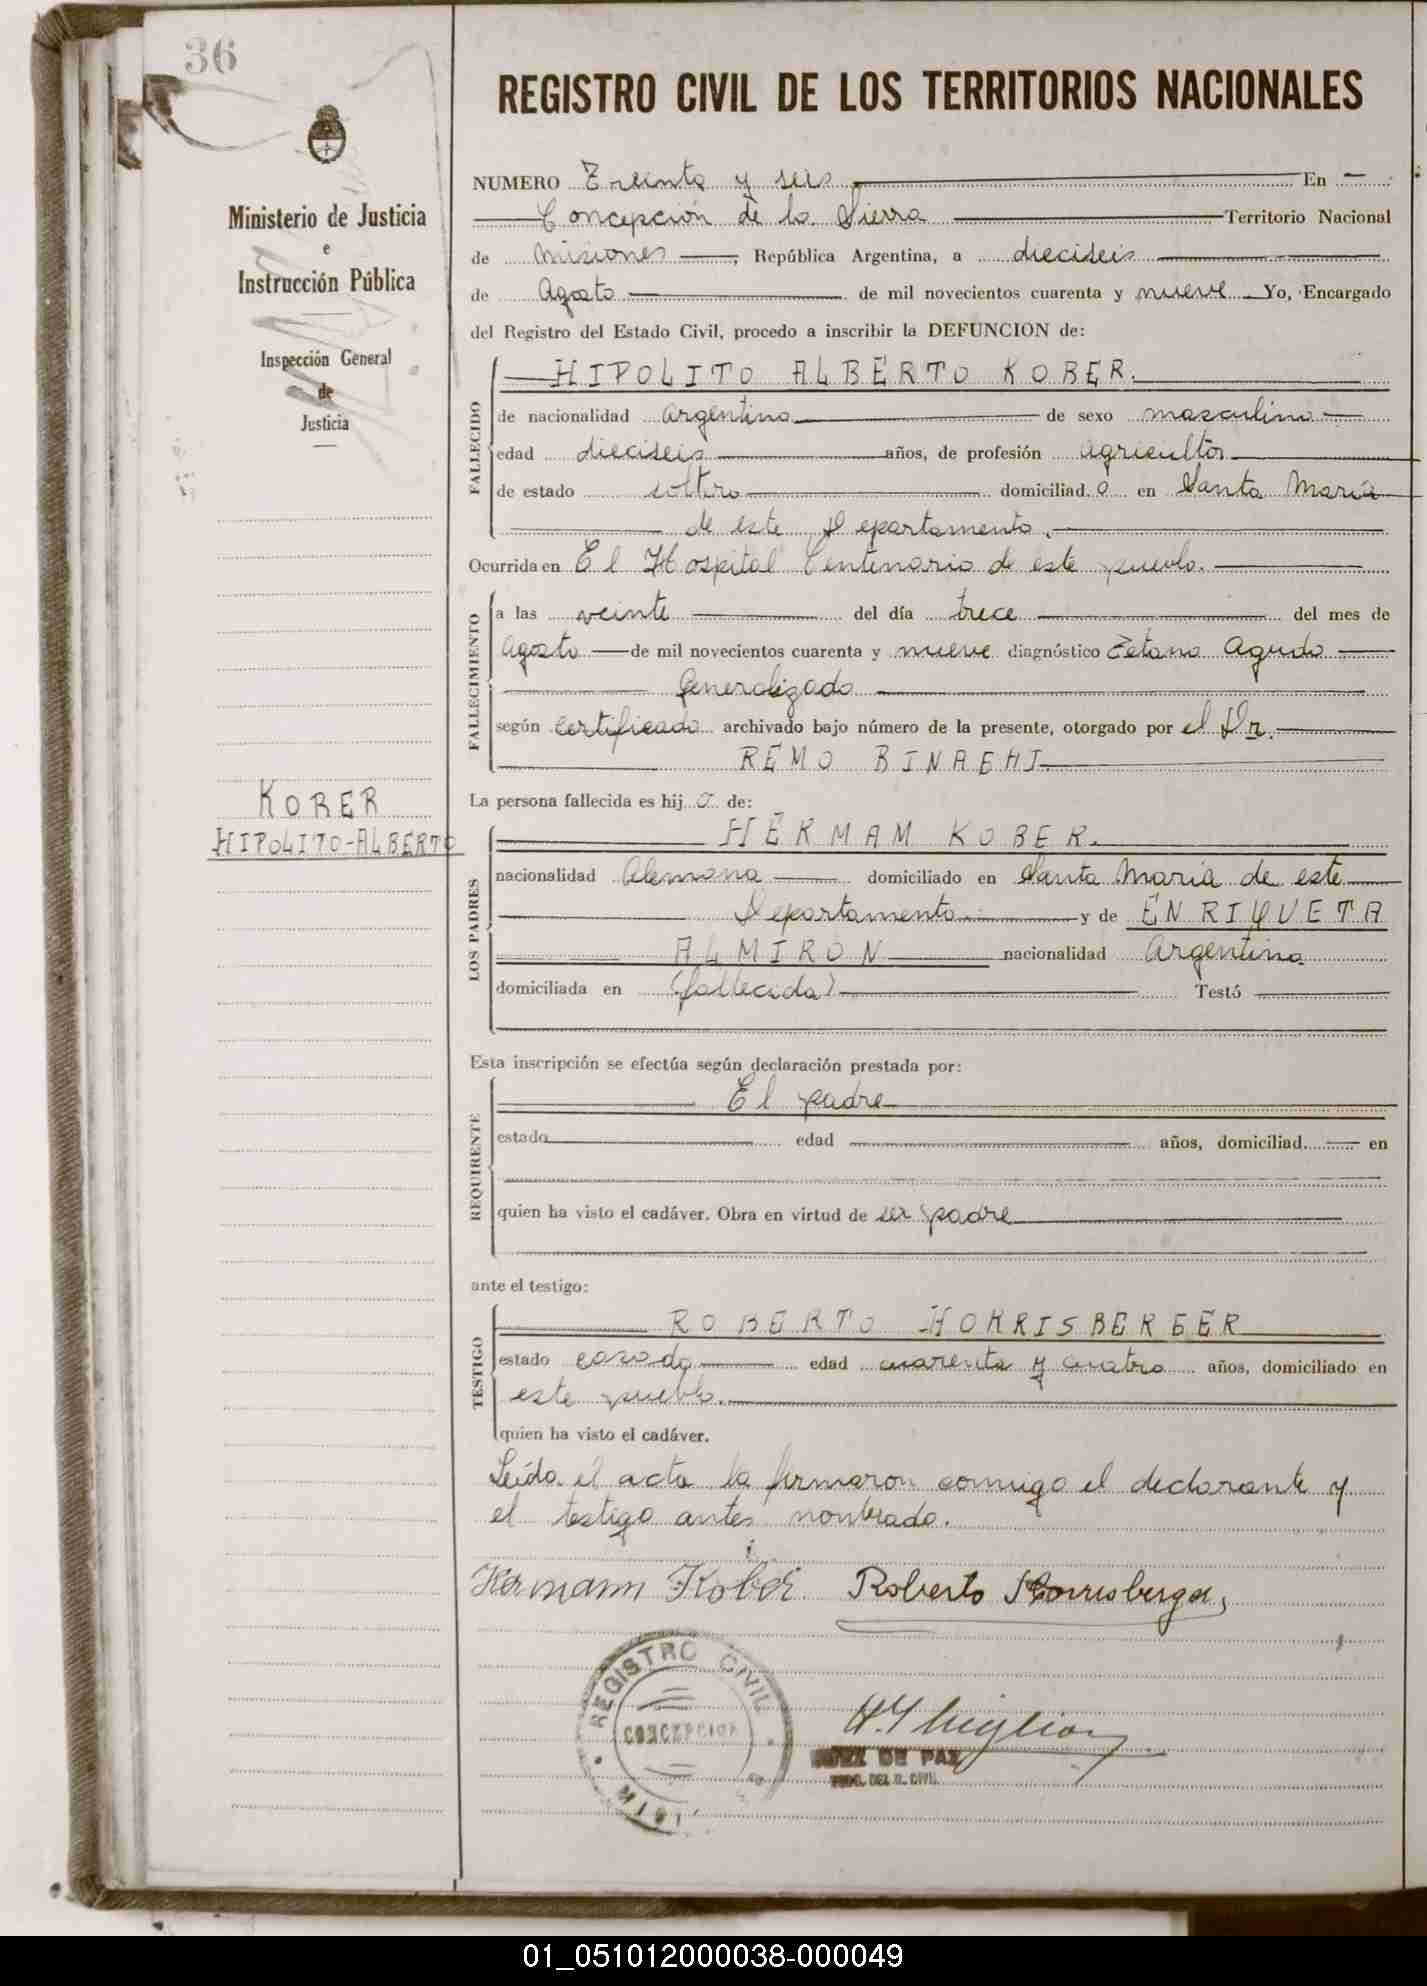 36
REGISTRO CIVIL DE LOS TERRITORIOS NACIONALES
Ministerio de Justicia
e
Instrucción Pública
Inspección General
de
Justicia
KOBER
HIPOLITO-ALBERTO
NUMERO Treinta y seis En
Concepción de la Sierra Territorio Nacional
de Misiones, República Argentina, a dieciseis
de Agosto de mil novecientos cuarenta y nueve Yo, Encargado
del Registro del Estado Civil, procedo a inscribir la DEFUNCION de:
HIPOLITO ALBERTO KOBER.
FALLECIDO
de nacionalidad argentina de sexo masculino
edad dieciseis años, de profesión agricultor
de estado soltero domiciliad o en Santa María
de este Departamento.
Ocurrida en El Hospital Centenario de este pueblo.
FALLECIMIENTO
a las veinte del día trece del mes de
Agosto de mil novecientos cuarenta y nueve diagnóstico Tetano Agudo
Generalizado
según certificado archivado bajo número de la presente, otorgado por el Dr.
REMO BINAGHI
La persona fallecida es hij o de:
LOS PADRES
HERMAM KOBER.
nacionalidad Alemana domiciliado en Santa María de este
Departamento y de ENRIQUETA
ALMIRON nacionalidad Argentina
domiciliada en (fallecida) Testó
Esta inscripción se efectúa según declaración prestada por:
REQUIRENTE
El padre
estado edad años, domiciliad en
quien ha visto el cadáver. Obra en virtud de ser padre
ante el testigo:
TESTIGO
ROBERTO HORRISBERGER
estado casado edad cuarenta y cuatro años, domiciliado en
este pueblo.
quien ha visto el cadáver.
Leída el acta la firmaron conmigo el declarante y
el testigo antes nombrado.
Hermann Kober Roberto Horrisberger
REGISTRO CIVIL
CONCEPCION
JUEZ DE PAZ
ENC. DEL R. CIVIL
01_051012000038-000049